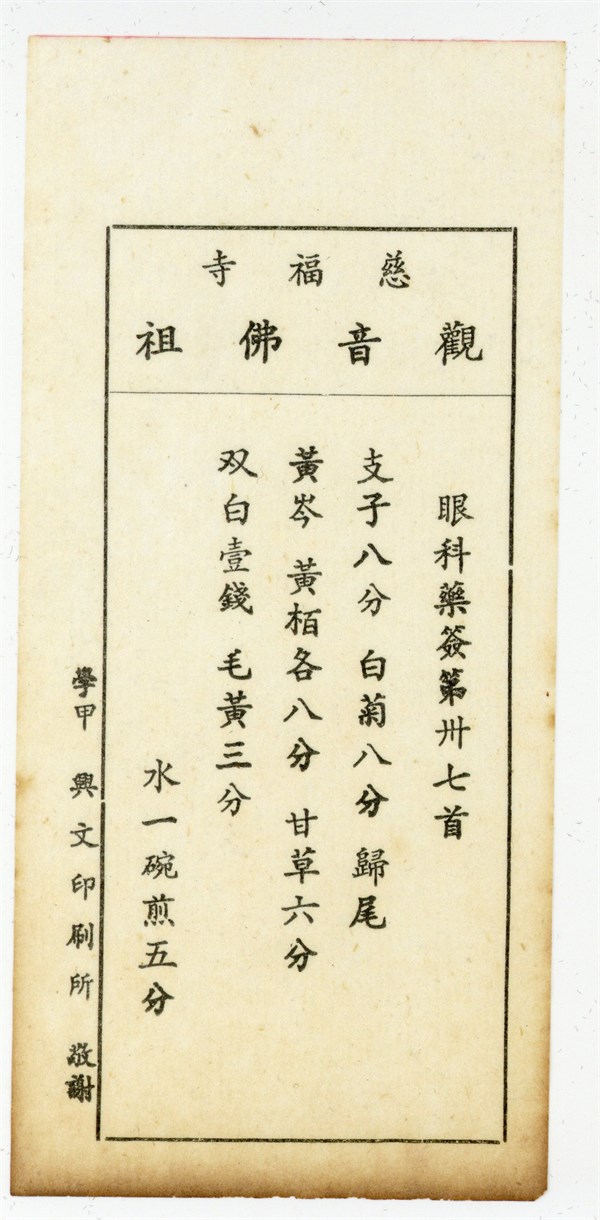 慈福寺
觀音佛祖
眼科藥簽第卅七首
支子八分 白菊八分 歸尾
黃岑 黃栢各八分 甘草六分
双白壹錢 毛黃三分
水一碗煎五分
學甲 興文印刷所 敬謝